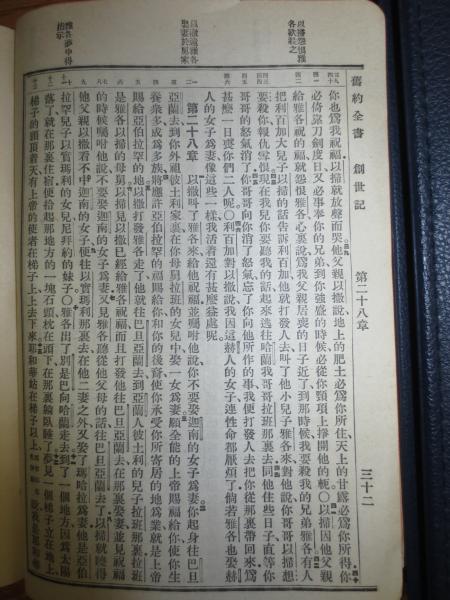 舊約全書　創世記　第二十八章　三十二
以掃怨恨雅
各欲殺之
以撒遣雅各
娶妻於原家
雅各夢中得
指示
你也爲我祝福以掃就放聲而哭他父親以撒說地上的肥土必爲你所住天上的甘露必爲你所得你
必倚靠刀劍度日又必事奉你的兄弟到你強盛的時候必從你頸項上掙開他的軛〇以掃因他父親
給雅各祝的福就怨恨雅各心裏說爲我父親居喪的日子近了到那時候我要殺我的兄弟雅各有人
把利百加大兒子以掃的話告訴利百加他就打發人去叫了他小兒子雅各來對他說你哥哥以掃想
要殺你報仇雪恨現在我兒你要聽我的話起來逃往哈蘭我哥哥拉班那裏去同他住些日子直等你
哥哥的怒氣消了你哥哥向你消了怒氣忘了你向他所作的事我便打發人去把你從那裏帶回來爲
甚麼一日喪你們二人呢〇利百加對以撒說我因這赫人的女子連性命都厭煩了倘若雅各也娶赫
人的女子爲妻像這些一樣我活着還有甚麼益處呢
第二十八章　以撒叫了雅各來給他祝福並囑咐他說你不要娶迦南的女子爲妻你起身往巴旦
亞蘭去到你外祖彼土利家裏在你母舅拉班的女兒中娶一女爲妻願全能的上帝賜福給你使你生
養衆多成爲多族將應許亞伯拉罕的福賜給你和你的後裔使你承受你所寄居的地爲業就是上帝
賜給亞伯拉罕的地以撒打發雅各走了他就往巴旦亞蘭去到亞蘭人彼土利的兒子拉班那裏拉班
是雅各以掃的母舅以掃見以撒已經給雅各祝福而且打發他往巴旦亞蘭去在那裏娶妻並見祝福
的時候囑咐他說不要娶迦南的女子爲妻又見雅各聽從他父母的話往巴旦亞蘭去了以掃就曉得
他父親以撒看不中迦南的女子便往以實瑪利那裏去在他二妻之外又娶了瑪哈拉爲妻他是亞伯
拉罕兒子以實瑪利的女兒尼拜約的妹子〇雅各出了別是巴向哈蘭走去到了一個地方因爲太陽
落了就在那裏住宿便拾起那地方的一塊石頭枕在頭下在那裏躺臥睡了夢見一個梯子立在地上
梯子的頭頂着天有上帝的使者在梯子上上去下來耶和華站在梯子以上說我是耶和華